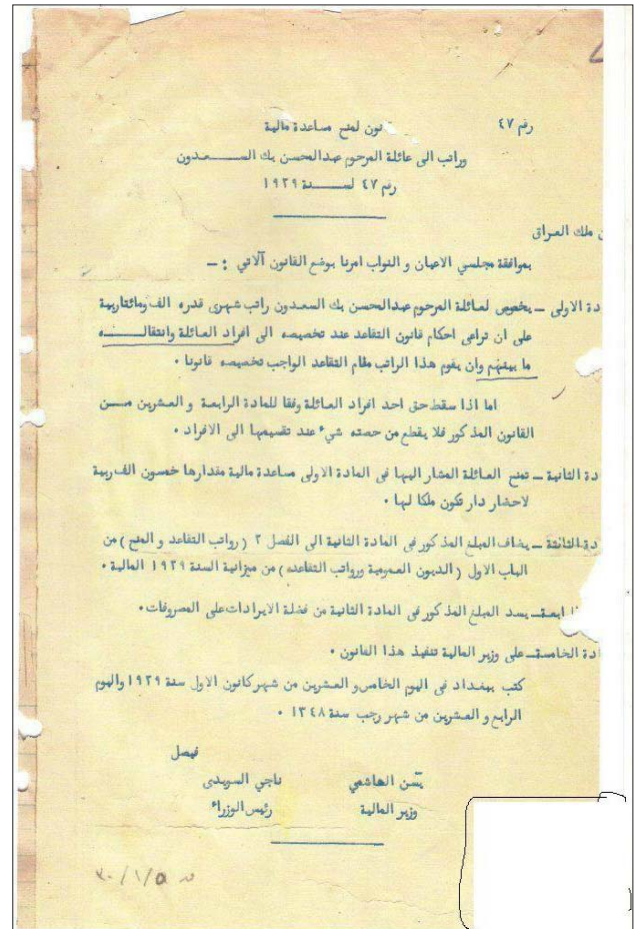 رقم ٤٧
نون لمنح مساعدة مالية
وراتب الى عائلة المرحوم عبدالمحسن بك السعدون
رقم ٤٧ لسنة ١٩٢٩
ملك العراق
بموافقة مجلسي الاعيان و النواب امرنا بوضع القانون الآتي : ــ
دة الاولى ــ يخصص لعائلة المرحوم عبدالمحسن بك السعدون راتب شهرى قدره الف ومائتاربية
على ان تراعى احكام قانون التقاعد عند تخصيصه الى افراد العائلة وانتقاله
ما بينهم وان يقوم هذا الراتب مقام التقاعد الواجب تخصيصه قانونا ٠
اما اذا سقط حق احد افراد العائلة وفقا للمادة الرابعة و العشرين من
القانون المذكور فلا يقطع من حصته شيء عند تقسيمها الى الافراد ٠
دة الثانية ــ تمنح العائلة المشار اليها فى المادة الاولى مساعدة مالية مقدارها خمسون الف ربية
لاحضار دار تكون ملكا لها ٠
دة الثالثة ــ يضاف المبلغ المذكور فى المادة الثانية الى الفصل ٢ ( رواتب التقاعد و المنح ) من
الباب الاول ( الديون العمومية ورواتب التقاعد ) من ميزانية السنة ١٩٢٩ المالية ٠
ابعة ــ يسد المبلغ المذكور فى المادة الثانية من فضلة الايرادات على المصروفات ٠
ادة الخامسة ــ على وزير المالية تنفيذ هذا القانون ٠
كتب ببغداد فى اليوم الخامس و العشرين من شهر كانون الاول سنة ١٩٢٩ واليوم
الرابع و العشرين من شهر رجب سنة ١٣٤٨ ٠
فيصل
يسن الهاشمي ناجي السويدى
وزير المالية رئيس الوزراء
٣٠/١/٥